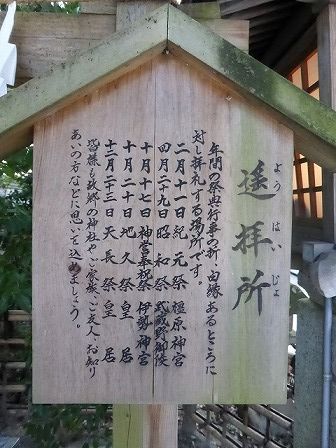 遥拝所
よう はい じょ
年間の祭典行事の折、由縁あるところに
対し拝礼する場所です。
二月十一日 紀元祭 橿原神宮
四月二十九日 昭和祭 武蔵野御陵
十月十七日 神嘗奉祝祭 伊勢神宮
十月二十日 地久祭 皇居
十二月二十三日 天長祭 皇居
皆様も故郷の神社やご家族、ご友人、お知り
あいの方などに思いを込めましょう。